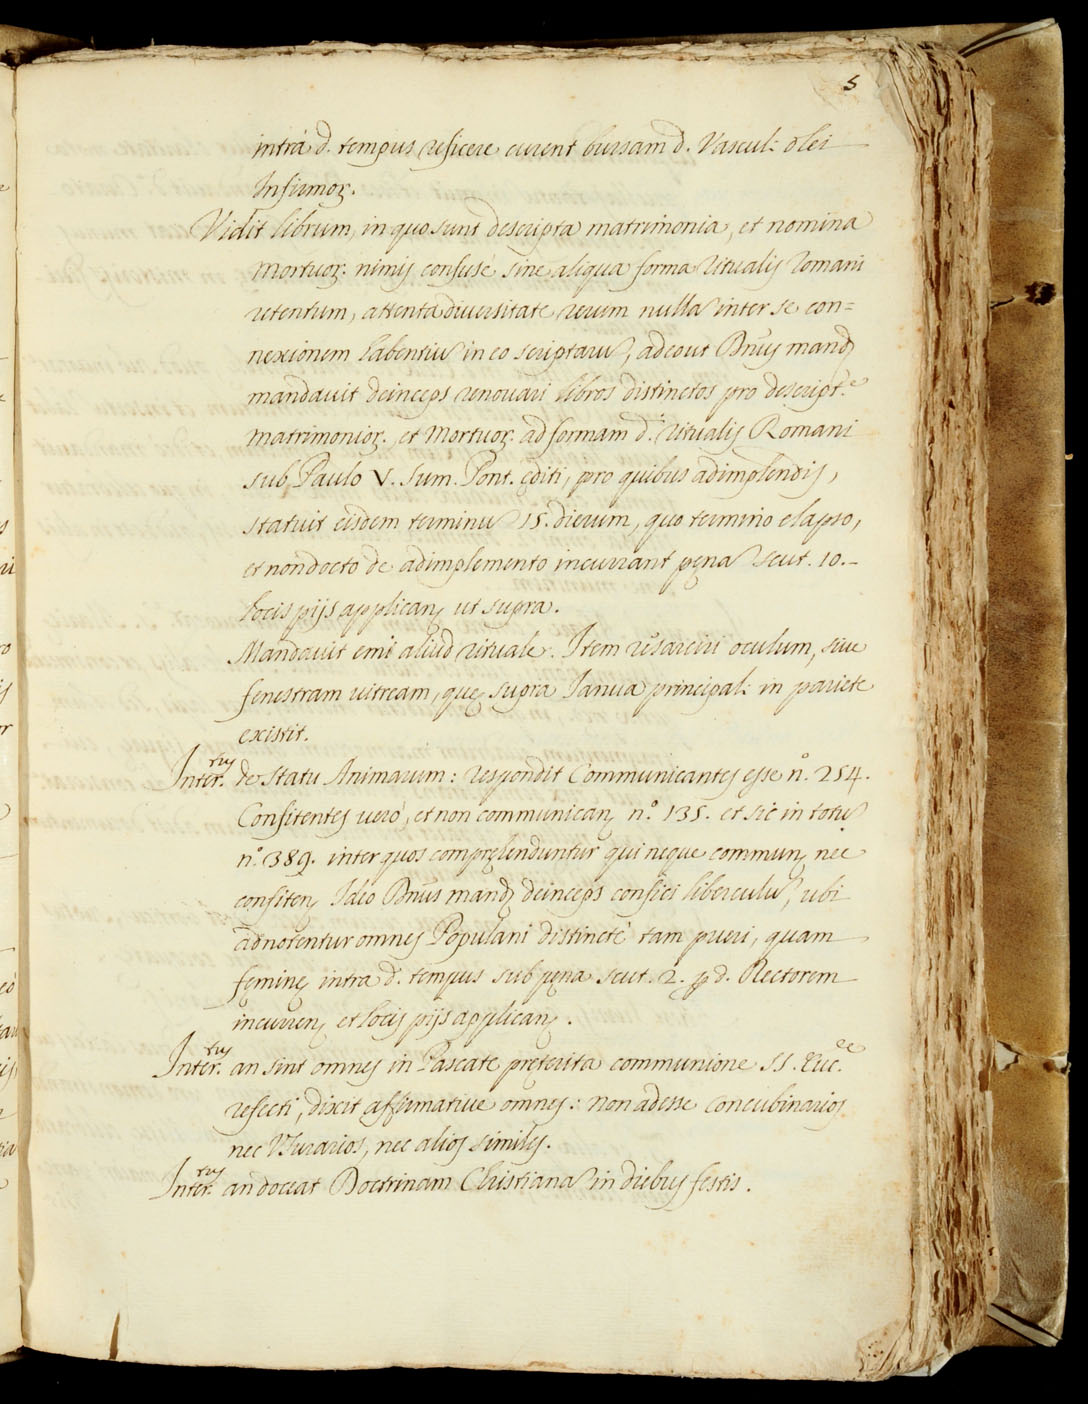 5
intrà d. tempus reficere curent bursam d. Vascul: olei
Infirmoꝝ.
Vidit librum, in quo sunt descripta matrimonia, et nomina
Mortuoꝝ: nimis confusè sine aliqua forma Ritualis Romani
retentum, attenta diversitate rerum nulla inter se con=
nexionem habentiũ in eo scriptarũ, adeout Dnũs mand.
mandavit deinceps renovari libros distinctos pro descript.e
Matrimonioꝝ. et Mortuoꝝ: ad formam d. Ritualis Romani
sub Paulo V. Sum. Pont. ęditi, pro quibus adimplendis,
statuit eisdem terminũ 15. dierum, quo termino elapso,
et non docto de adimplemento incurrant pęna scut. 10.-
locis pijs applicanꝫ ut supra.
Mandavit emi aliud rituale. Item resarciri oculum, sive
fenestram vitream, quę supra Janua principal: in pariete
existit.
Inter.tus de Statu Animarum: respondit Communicantes esse n.o 254.
Confitentes verò, et non communicanꝫ n.o 135. et sic in totũ
n.o 389. inter quos compręhenduntur qui neque communꝫ nec
confitenꝫ Ideo Dnũs mand. deinceps confici liberculũ, ubi
adnotentur omnes Populani distinctè tam pueri, quam
fęminę intra d. tempus sub pęna scut. 2. ꝑ d. Rectorem
incurrenꝫ et locis pijs applicanꝫ.
Inter.tus an sint omnes in Pascate pręterita communione SS. Euc.ae
refecti, dixit affirmative omnes: non adesse Concubinarios
nec Usurarios, nec alios similes.
Inter.tus an doceat Doctrinam Christianã in diebus festis.